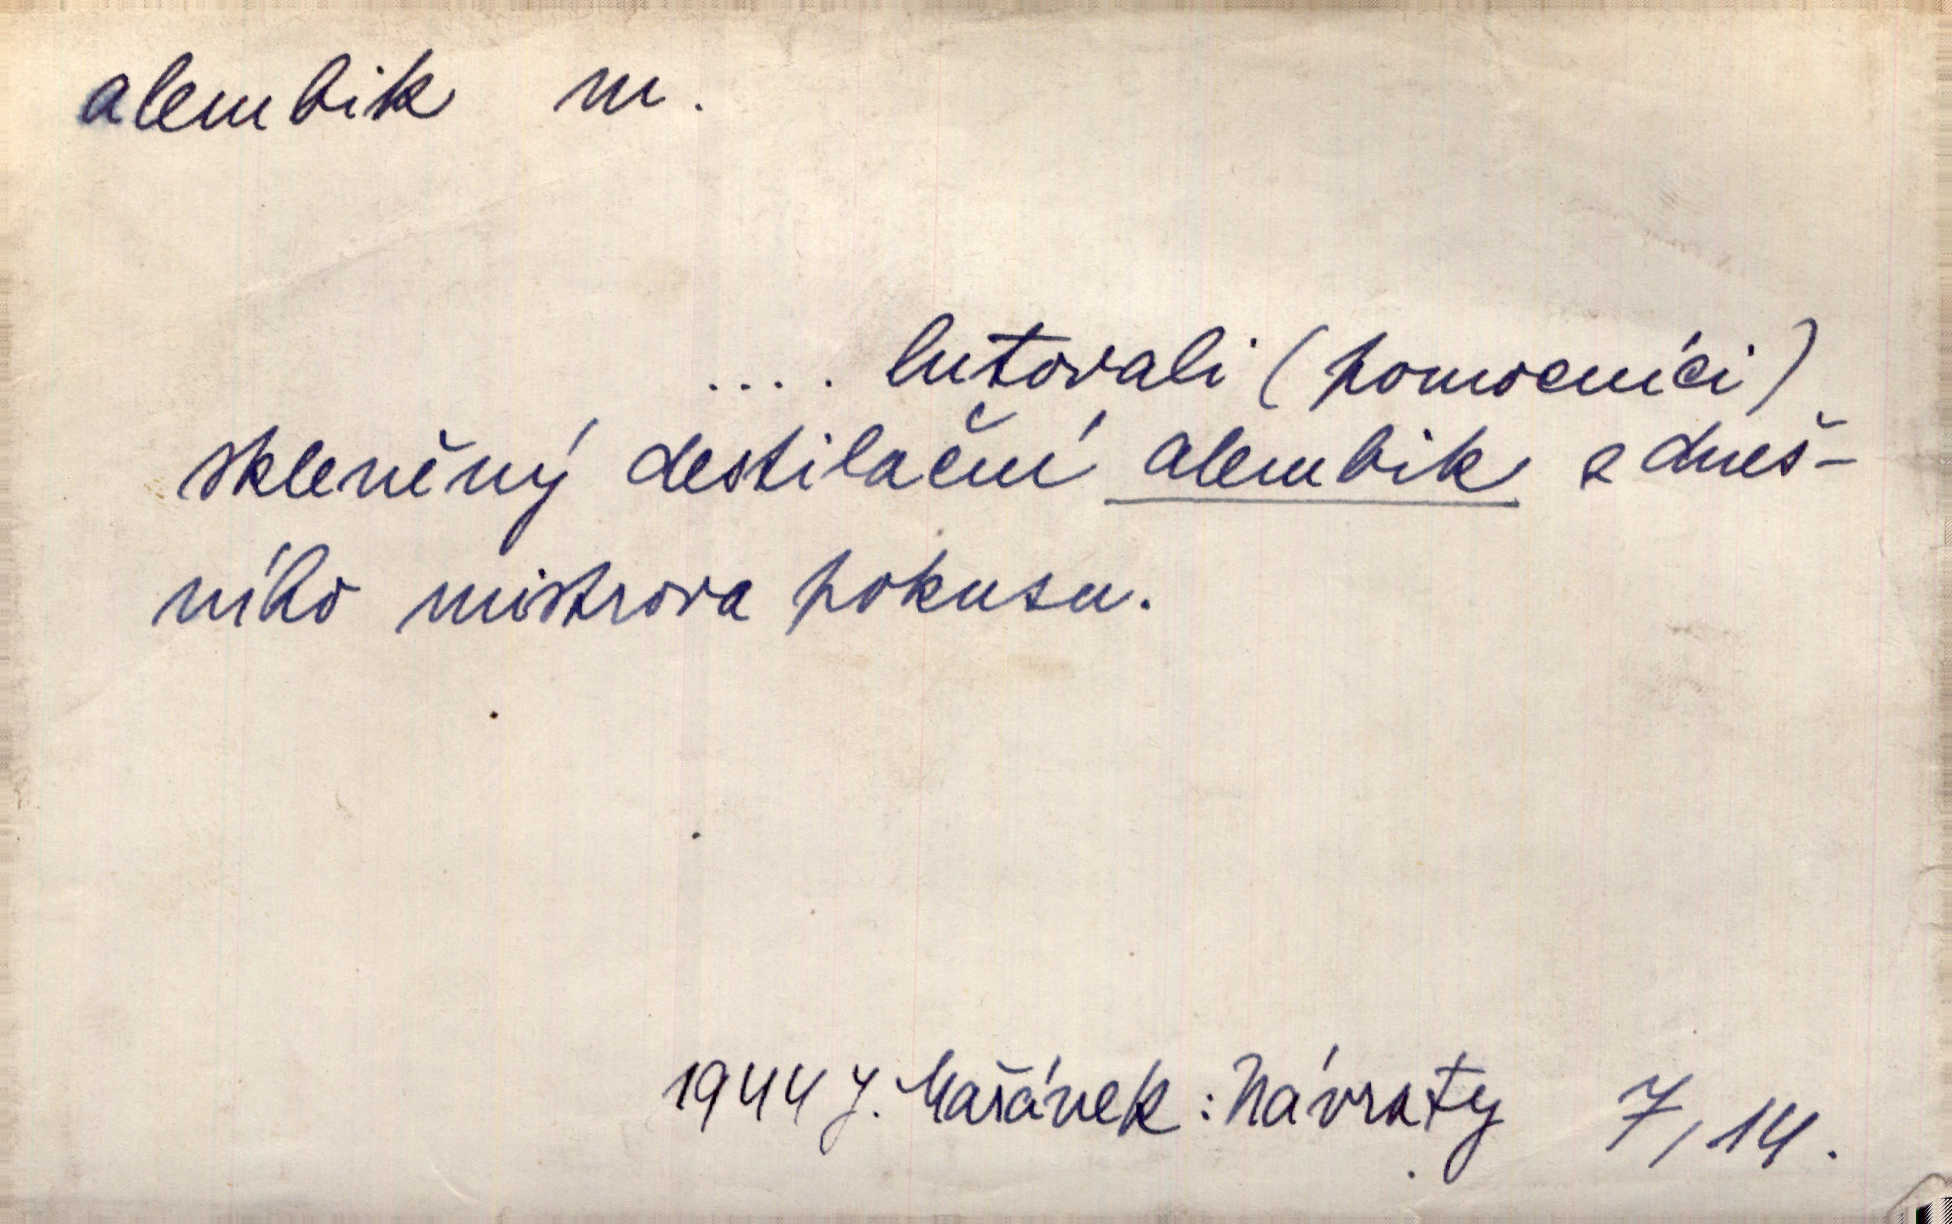 alembik m.
.... lutovali (pomocníci)
skleněný destilační alembik z dneš-
ního mistrova pokusu.
1944 J. Mařánek: Návraty 7, 14.